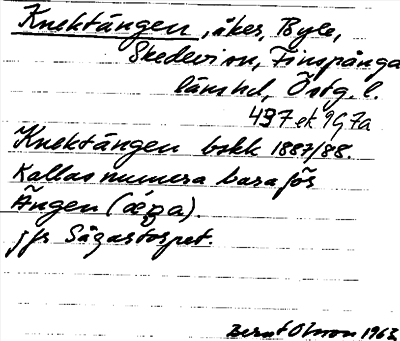 Knektängen, åker, Byle,
Skedevi sn, Finspånga
läns hd, Östg. l.
437 ek 9G 7a
Knektängen bskk 1887/88.
Kallas numera bara för
Ängen (æŋa).
jfr Sågartorpet.
Bernt Olsson 1963